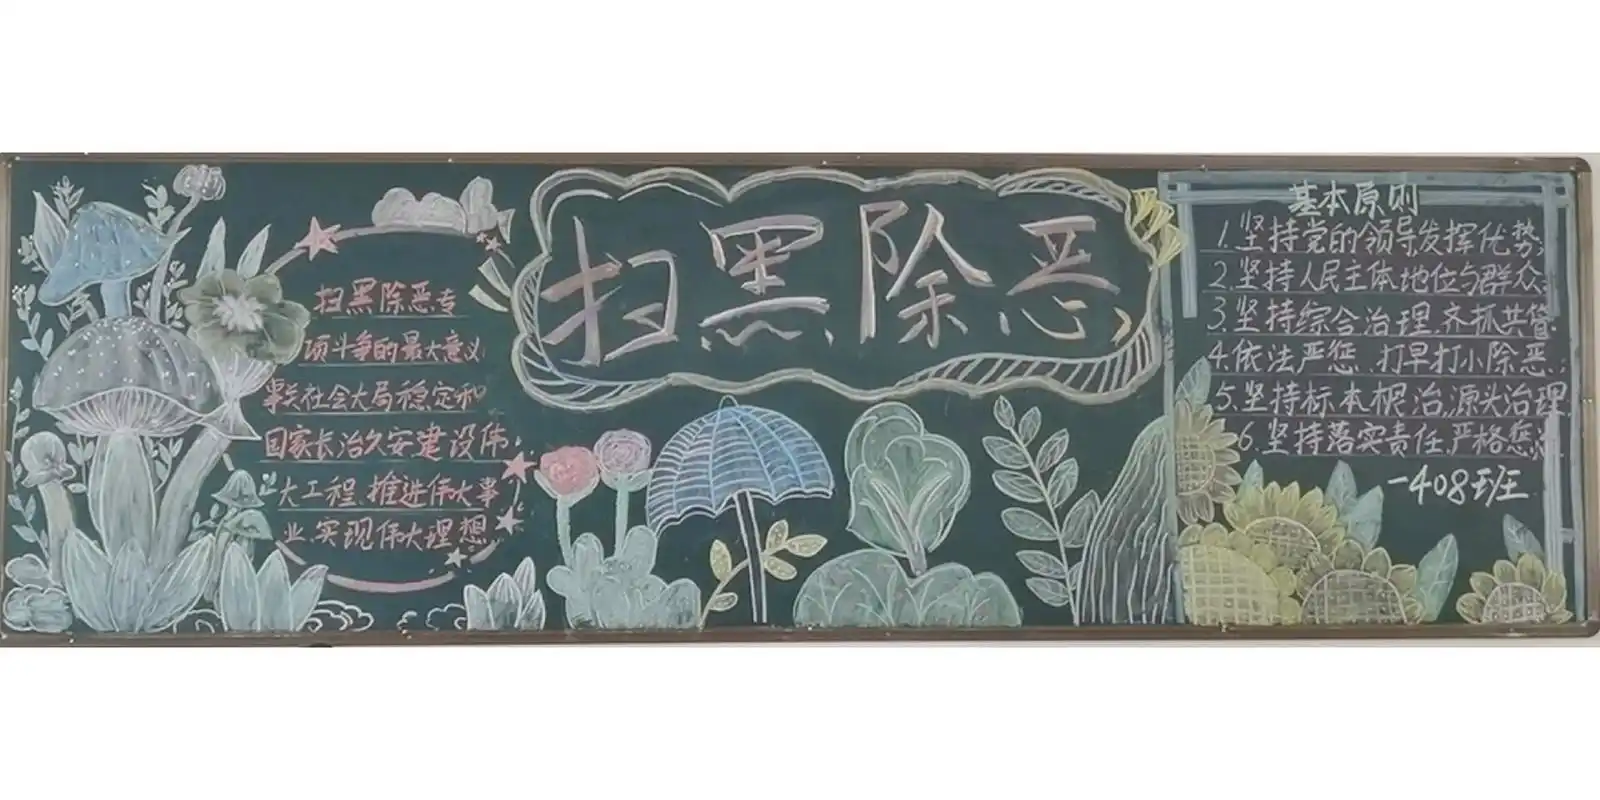 扫黑除恶
扫黑除恶专
项斗争的最大意义
事关社会大局稳定和
国家长治久安建设伟
大工程、推进伟大事
业、实现伟大理想
基本原则
1.坚持党的领导发挥优势;
2.坚持人民主体地位与群众;
3.坚持综合治理,齐抓共管.
4.依法严惩、打早打小除恶;
5.坚持标本根治,源头治理,
6.坚持落实责任,严格惩
—408班